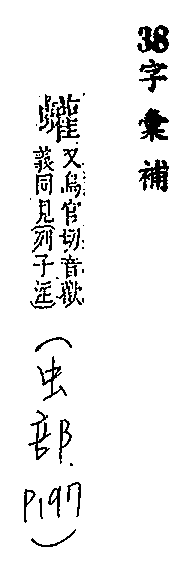 38字彙補
蠸又烏官切音歡
義同見(列子注)
(虫部.
P197)